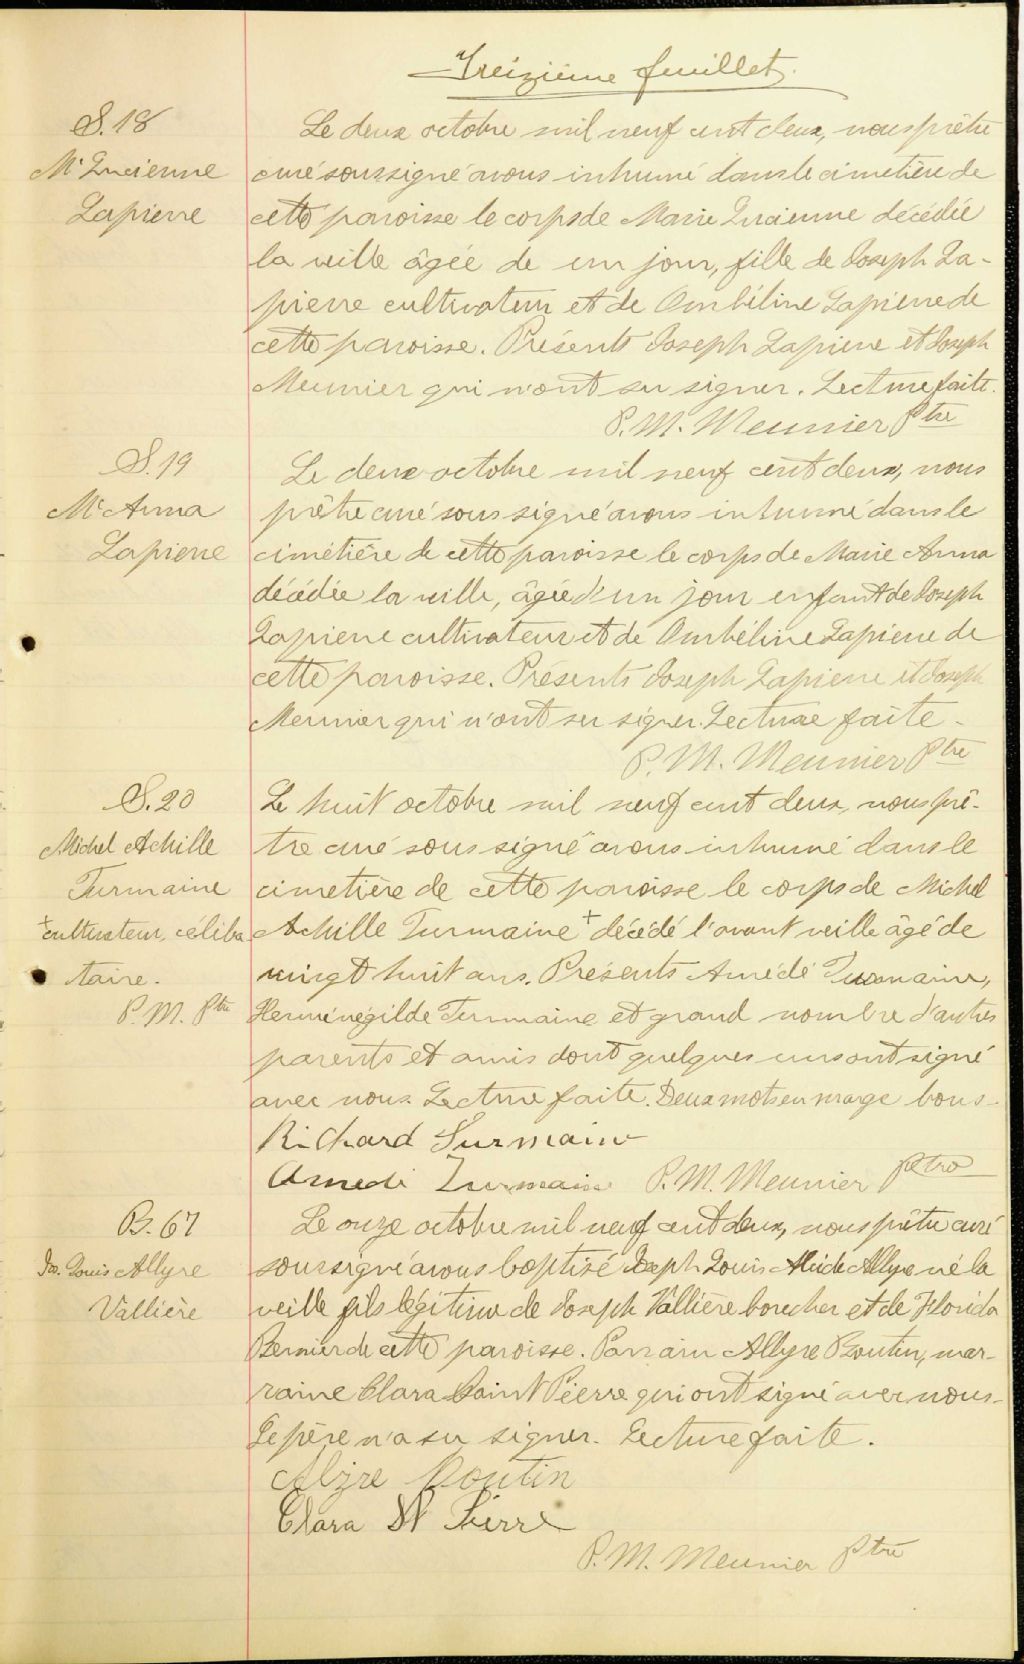 Treizième feuillet.
S. 18
Mie Lucienne
Lapierre
Le deux octobre mil neuf cent deux, nous prêtre
curé soussigné avons inhumé dans le cimetière de
cette paroisse le corps de Marie Lucienne décédée
la veille âgée de un jour, fille de Joseph La-
pierre cultivateur et de Ombéline Lapierre de
cette paroisse. Présents Joseph Lapierre et Joseph
Meunier qui n'ont su signer. Lecture faite.
P. M. Meunier Ptre
S. 19
Mie Anna
Lapierre
Le deux octobre mil neuf cent deux, nous
prêtre curé sous signé avons inhumé dans le
cimétière de cette paroisse le corps de Marie Anna
décédée la veille, âgée d'un jour enfant de Joseph
Lapierre cultivateur et de Ombéline Lapierre de
cette paroisse. Présents Joseph Lapierre et Joseph
Meunier qui n'ont su signer. Lecture faite -
P. M. Meunier Ptre
S. 20
Michel Achille
Turmaine
+cultivateur, céliba
taire.
P. M. Ptre
Le huit octobre mil neuf cent deux, nous prê-
tre curé sous signé avons inhumé dans le
cimetière de cette paroisse le corps de Michel
Achille Turmaine + décédé l'avant veille âgé de
vingt huit ans. Présents Amédé Turmaine,
Herménégilde Turmaine et grand nombre d'autres
parents et amis dont quelques uns ont signé
avec nous. Lecture faite. Deux mots en marge bons -
Richard Turmaine
Amedi Turmaine P. M. Meunier ptre
B. 67
Jos. Louis Allyre
Vallière
Le onze octobre mil neuf cent deux, nous prêtre curé
soussigné avons baptisé Joseph Louis Allyre né la
veille fils légitime de Joseph Vallière boucher et de Florida
Bernier de cette paroisse. Parrain Allyre Boutin, mar-
raine Clara Saint Pierre qui ont signé avec nous.
Le père n'a su signer. Lecture faite.
Alyre Boutin
Clara St Pierre
P. M. Meunier Ptre